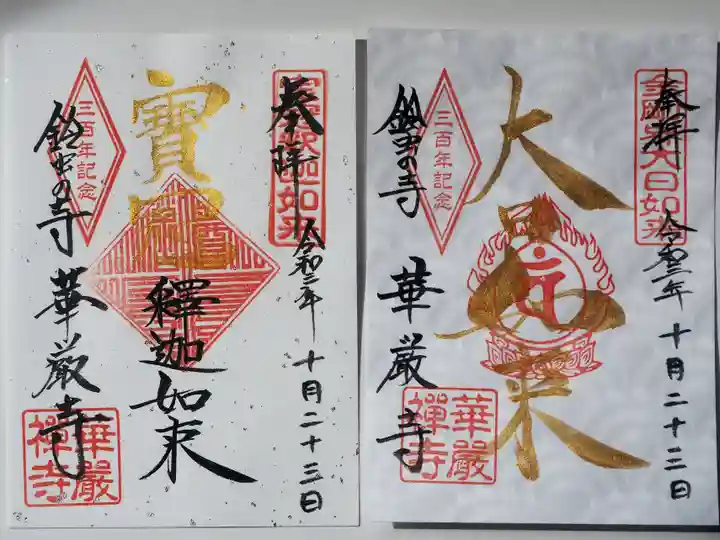 奉拝 令和三年 十月二十三日
寶冠
釋迦如来
三百年記念
鈴虫の寺 華厳寺
華嚴
禪寺
奉拝 令和三年 十月二十三日
金剛界大日如来
大日如来
三百年記念
鈴虫の寺 華厳寺
華嚴
禪寺